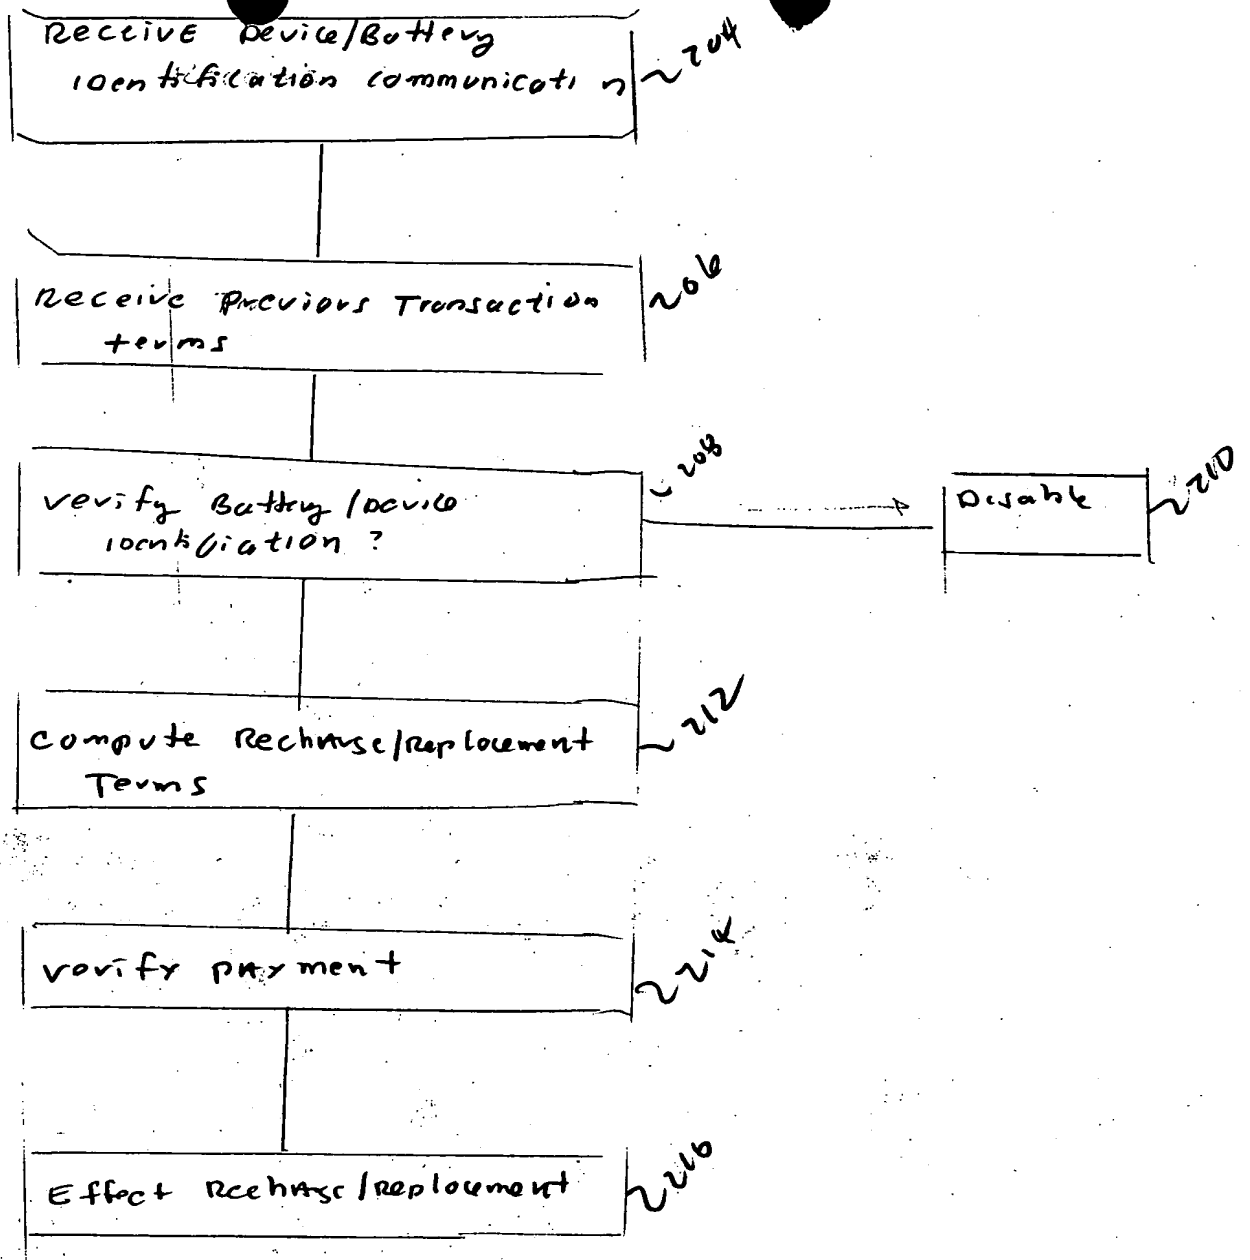 Receive Device/Battery
identification communication
204
Receive Previous Transaction
terms
206
verify Battery/Device
identification ?
208
Disable
210
compute Recharge/Replacement
Terms
212
verify payment
214
Effect Recharge/Replacement
216